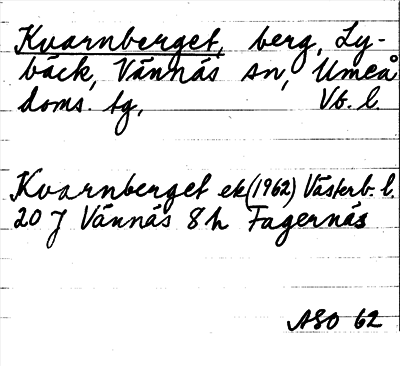 Kvarnberget, berg, Ly-
bäck, Vännäs sn, Umeå
doms. tg, Vb. l.
Kvarnberget ek (1962) Västerb. l.
20 J Vännäs 8 h Fagernäs
ASO 62